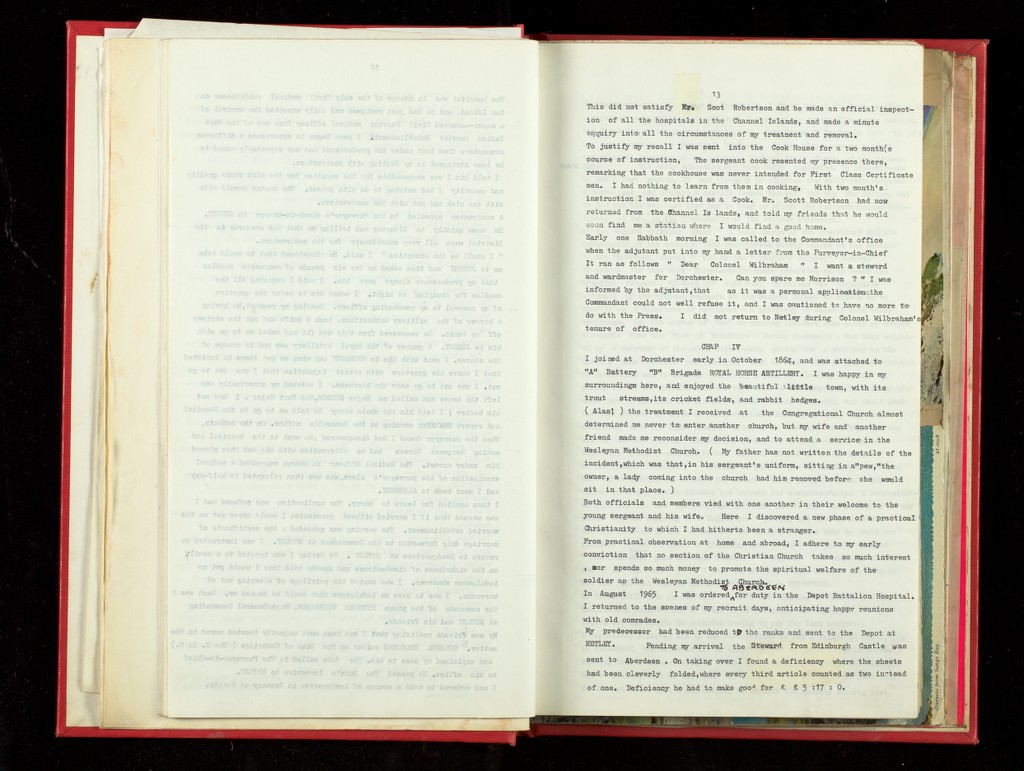 13
This did not satisfy Mr. Scot Robertson and he made an official inspect-
ion of all the hospitals in the Channel Islands, and made a minute
enquiry into all the circumstances of my treatment and removal.
To justify my recall I was sent into the Cook House for a two month(s
course of instruction, The sergeant cook resented my presence there,
remarking that the cookhouse was never intended for First Class Certificate
men. I had nothing to learn from them in cooking, With two month's
instruction I was certified as a Cook. Mr. Scott Robertson had now
returned from the Channel Is lands, and told my friends that he would
soon find me a station where I would find a good home.
Early one Sabbath morning I was called to the Commandant's office
when the adjutant put into my hand a letter from the Purveyor-in-Chief
It ran as follows " Dear Colonel Wilbraham " I want a steward
and wardmaster for Dorchester. Can you spare me Morrison ? " I was
informed by the adjutant,that as it was a personal application:the
Commandant could not well refuse it, and I was cautioned to have no more to
do with the Press. I did not return to Netley during Colonel Wilbraham's
tenure of office.
CHAP IV
I joined at Dorchester early in October 1864, and was attached to
"A" Battery "B" Brigade ROYAL HORSE ARTILLERY. I was happy in my
surroundings here, and enjoyed the beautiful little town, with its
trout streams,its cricket fields, and rabbit hedges.
( Alas! ) the treatment I received at the Congregational Church almost
determined me never to enter another church, but my wife and another
friend made me reconsider my decision, and to attend a service in the
Wesleyan Methodist Church. ( My father has not written the details of the
incident,which was that,in his sergeant's uniform, sitting in a"pew,"the
owner, a lady coming into the church had him removed before she would
sit in that place. )
Both officials and members vied with one another in their welcome to the
young sergeant and his wife. Here I discovered a new phase of a practical
Christianity to which I had hitherto been a stranger.
From practical observation at home and abroad, I adhere to my early
conviction that no section of the Christian Church takes so much interest
, nor spends so much money to promote the spiritual welfare of the
soldier as the Wesleyan Methodist Church.
TO ABERDEEN
In August 1965 I was ordered for duty in the Depot Battalion Hospital.
I returned to the scenes of my recruit days, anticipating happy reunions
with old comrades.
My predecessor had been reduced to the ranks and sent to the Depot at
NETLEY. Pending my arrival the Steward from Edinburgh Castle was
sent to Aberdeen . On taking over I found a deficiency where the sheets
had been cleverly folded,where every third article counted as two instead
of one. Deficiency he had to make good for £ £ 5 :17 : 0.